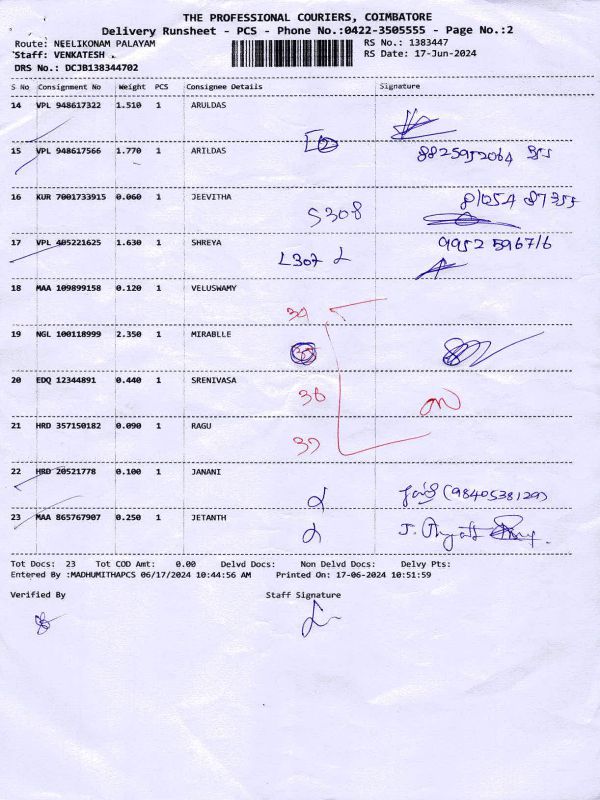 THE PROFESSIONAL COURIERS, COIMBATORE
Delivery Runsheet - PCS - Phone No.:0422-3505555 - Page No.:2
Route: NEELIKONAM PALAYAM RS No.: 1383447
Staff: VENKATESH . RS Date: 17-Jun-2024
DRS No.: DCJB138344702
S No Consignment No Weight PCS Consignee Details Signature
14 VPL 948617322 1.510 1 ARULDAS
15 VPL 948617566 1.770 1 ARILDAS
16 KUR 7001733915 0.060 1 JEEVITHA
S308
17 VPL 405221625 1.630 1 SHREYA 99525967/6
L307
18 MAA 109899158 0.120 1 VELUSWAMY
34
19 NGL 100118999 2.350 1 MIRABLLE
20 EDQ 12344891 0.440 1 SRENIVASA
36
21 HRD 357150182 0.090 1 RAGU
37
22 HRD 20521778 0.100 1 JANANI
(9840538129)
23 MAA 865767907 0.250 1 JETANTH
Tot Docs: 23 Tot COD Amt: 0.00 Delvd Docs: Non Delvd Docs: Delvy Pts:
Entered By :MADHUMITHAPCS 06/17/2024 10:44:56 AM Printed On: 17-06-2024 10:51:59
Verified By Staff Signature